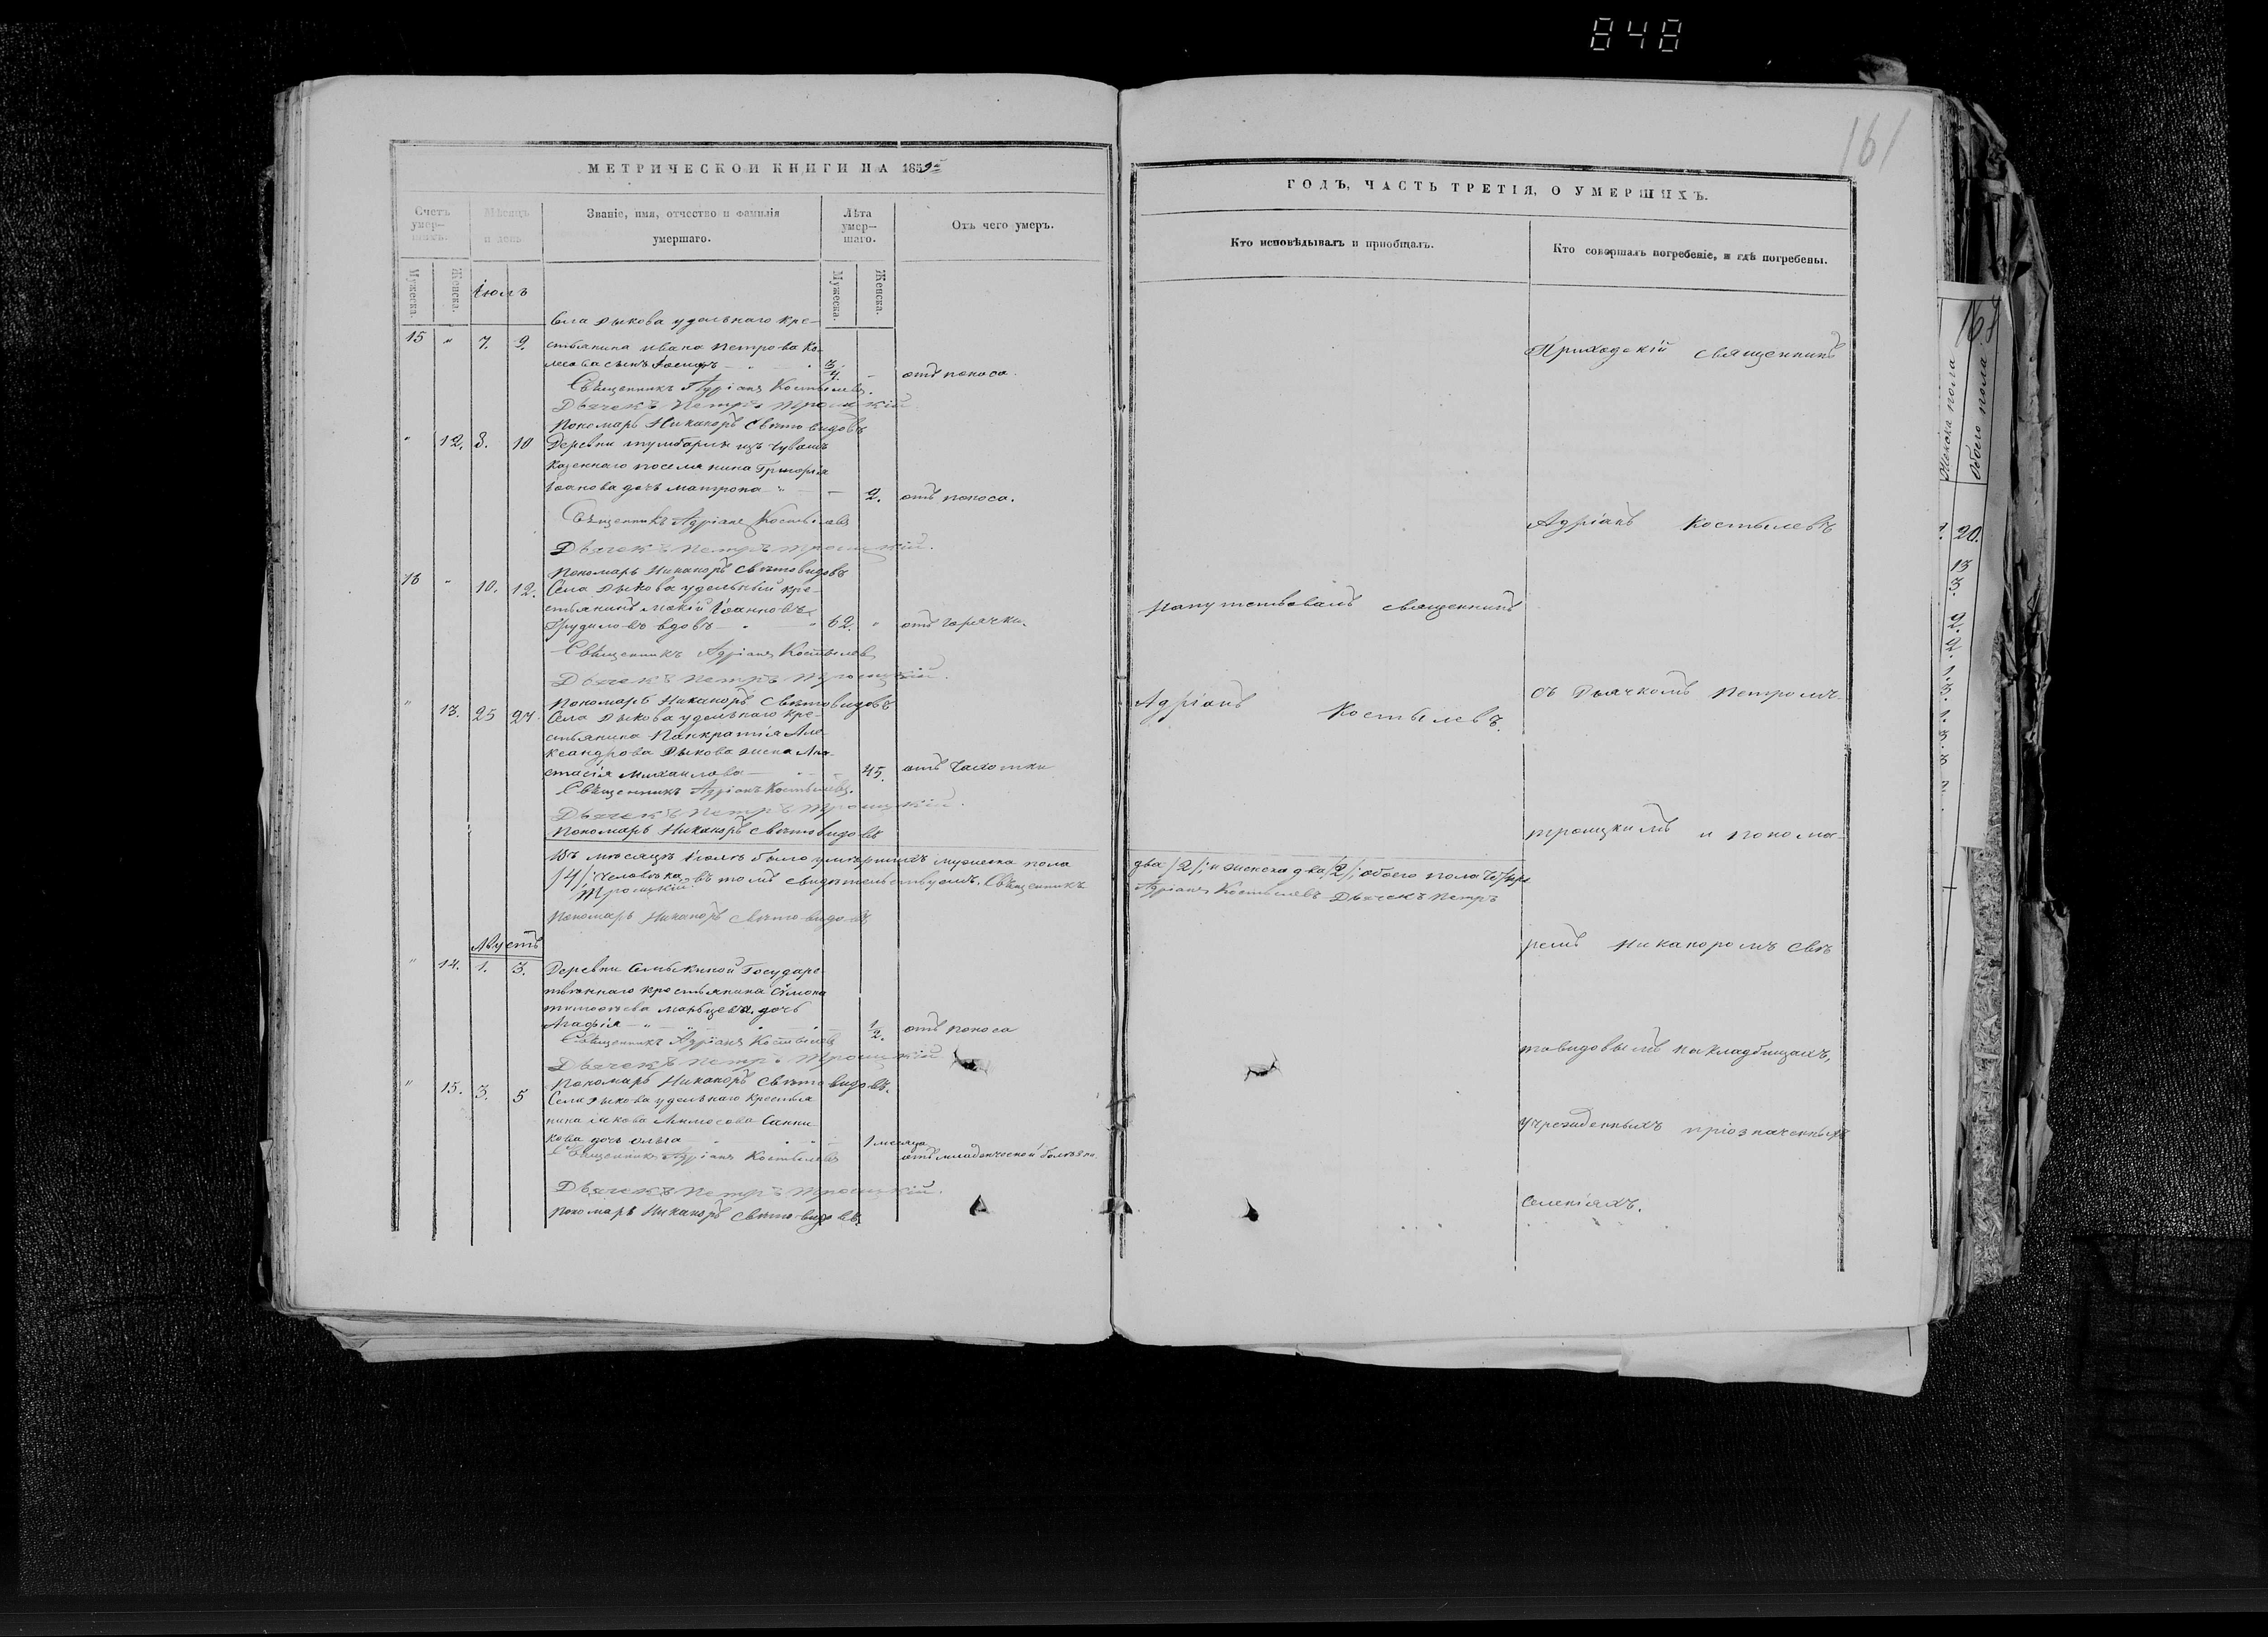 848
161
МЕТРИЧЕСКОЙ КНИГИ НА 1859й
Счетъ умер–шихъ.
Мѣсяцъ и день
Званіе, имя, отчество и фамилія
умершаго.
Лѣта умер–шаго.
Отъ чего умеръ.
Мужеска.
Женска.
Мужеска.
Женска.
Іюль
Села Дыкова удѣльнаго кре-
15 " 7. 9. стьянина Ивана Петрова Ко-
лесова сынъ Іосифъ 3/4 отъ поноса.
Священникъ Адріанъ Костылевъ.
Дьячекъ Петръ Троицкій
Пономарь Никаноръ Свѣтовидовъ
" 12. 8. 10 Деревни изъ Чувашъ
казеннаго поселянина Григорья
Іоанова дочь Матрона 2. отъ поноса.
Священникъ Адріанъ Костылевъ
Дьячекъ Петръ Троицкій.
Пономарь Никаноръ Свѣтовидовъ
16 " 10. 12. Села Дыкова удѣльный кре-
стьянинъ Мокій Іоанновъ
Грудиловъ вдовъ 62. " отъ горячки.
Священникъ Адріанъ Костылевъ
Дьячекъ Петръ Троицкій.
Пономарь Никаноръ Свѣтовидовъ
" 13. 25 27. Села Дыкова удѣльнаго кре-
стьянина Панкратія Але-
ксандрова Дыкова жена Ана-
стасія Михаилова 45. отъ чахотки
Священникъ Адріанъ Костылевъ.
Дьячекъ Петръ Троицкій.
Пономарь Никаноръ Свѣтовидовъ
Въ мѣсяцѣ Іюлѣ было умершихъ мужеска пола
/4/ человѣка, въ томъ свидѣтельствуемъ. Священникъ
Троицкій
Пономарь Никаноръ Свѣтовидовъ.
Августъ
" 14. 1. 3. Деревни Государс-
твеннаго крестьянина Сѵмона
Тимоѳеева дочь
Агафія 1/2. отъ поноса
Священникъ Адріанъ Костылевъ
Дьячекъ Петръ Троицкій
Пономарь Никаноръ Свѣтовидовъ.
" 15. 3. 5 Села Дыкова удѣльнаго крестья
нина Іакова
дочь Ольга 1 месяца отъ младенческой болѣзни
Священникъ Адріанъ Костылевъ
Дьячекъ Петръ Троицкій.
Пономарь Никаноръ Свѣтовидовъ.
ГОДЪ, ЧАСТЬ ТРЕТІЯ, О УМЕРШИХЪ.
Кто исповѣдывалъ и пріобщалъ.
Кто совершалъ погребеніе, и гдѣ погребены.
Приходскій священникъ
Адріанъ Костылевъ
Напутствовалъ священникъ
съ Дьячкомъ Петромъ
Адріанъ Костылевъ.
Троицкимъ и понома-
два /2/; и женска два /2/; обоего пола четыре
Адріанъ Костылевъ Дьячекъ Петръ
ремъ Никаноромъ Свѣ
товидовымъ на кладбищахъ,
учрежденныхъ при означенныхъ
селеніяхъ.
167
Женска пола
Обоего пола
20.
13
3.
2.